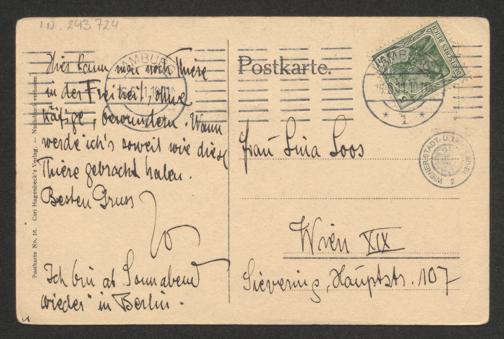 IN. 243.724
Hier kann man noch Thiere
in der Freiheit, ohne
Käfige, bewundern. Wann
werde ich's soweit wie diese
Thiere gebracht haben.
Besten Gruss
Ich bin ab Sonnabend
wieder in Berlin.
Postkarte.
HAMBURG
HAMBURG
1
Frau Lina Loos
Wien XIX
Sievering, Hauptstr. 107
Postkarte No. 16. Carl Hagenbeck's Verlag.
WIENER STADT-